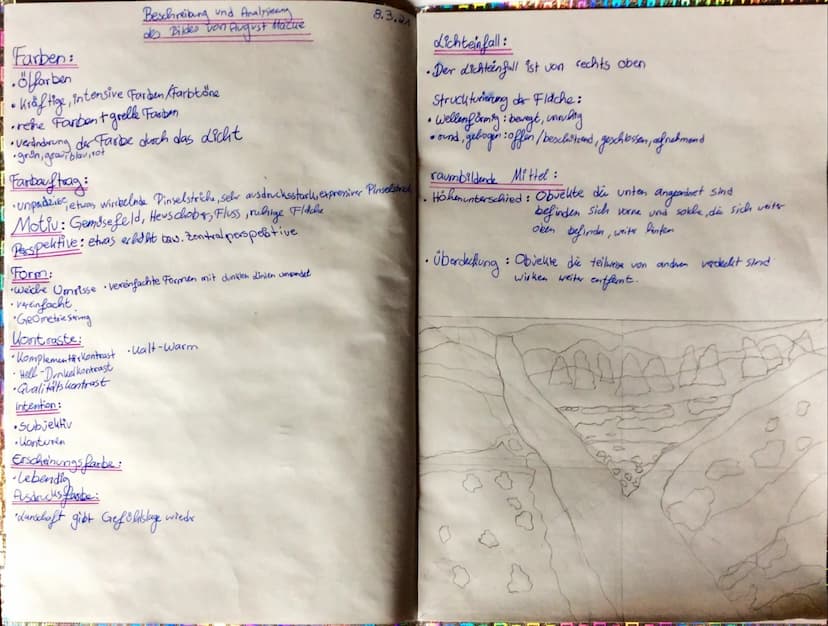 Beschreibung und Analysierung
des Bildes von August Macke
8.3.21
Farben:
• Ölfarben
• kräftige, intensive Farben/Farbtöne
• reine Farben + grelle Farben
• veränderung der Farbe durch das Licht
• grün, grau, blau, rot
Farbauftrag:
• unpräzise, etwas wirbelnde Pinselstriche, sehr ausdrucksstark, expressiver Pinselstrich
Motiv: Gemüsefeld, Heuschober, Fluss, ruhige Fläche
Perspektive: etwas erhöht bzw. Zentralperspektive
Form:
• weiche Umrisse • vereinfachte Formen mit dunklen Linien umrandet
• vereinfacht
• Geometrisierung
Kontraste:
• Komplementärkontrast • Kalt-Warm
• Hell-Dunkelkontrast
• Qualitätskontrast
Intention:
• subjektiv
• Konturen
Erscheinungsfarbe:
• Lebendig
Ausdrucksfarbe:
• Landschaft gibt Gefühlslage wieder
Lichteinfall:
• Der Lichteinfall ist von rechts oben
Struckturierung der Fläche:
• Wellenförmig: bewegt, unruhig
• rund, gebogen: offen/beschützend, geschlossen, aufnehmend
raumbildende Mittel:
• Höhenunterschied: Objekte die unten angeordnet sind
befinden sich vorne und solche, die sich weiter
oben befinden, weiter hinten
• Überdeckung: Objekte die teilweise von andren verdeckt sind
wirken weiter entfernt.